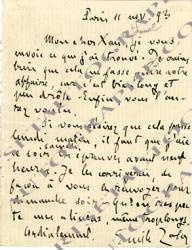 Paris 11 nov. 93
Mon cher Xau, je vous
envoie ce que j'ai trouvé. Je crains
bien que cela ne fasse pas votre
affaire, car c'est bien long et
peu drôle. Enfin vous l'au-
rez voulu.
Si vous désirez que cela passe
lundi matin, il faut que j'aie
ce soir samedi les épreuves avant neuf
heures. Je les corrigerai de
façon à vous les renvoyer pour
dimanche soir. Qu'on respec-
te mes alinéas, même trop longs.
Cordialement
Emile Zola